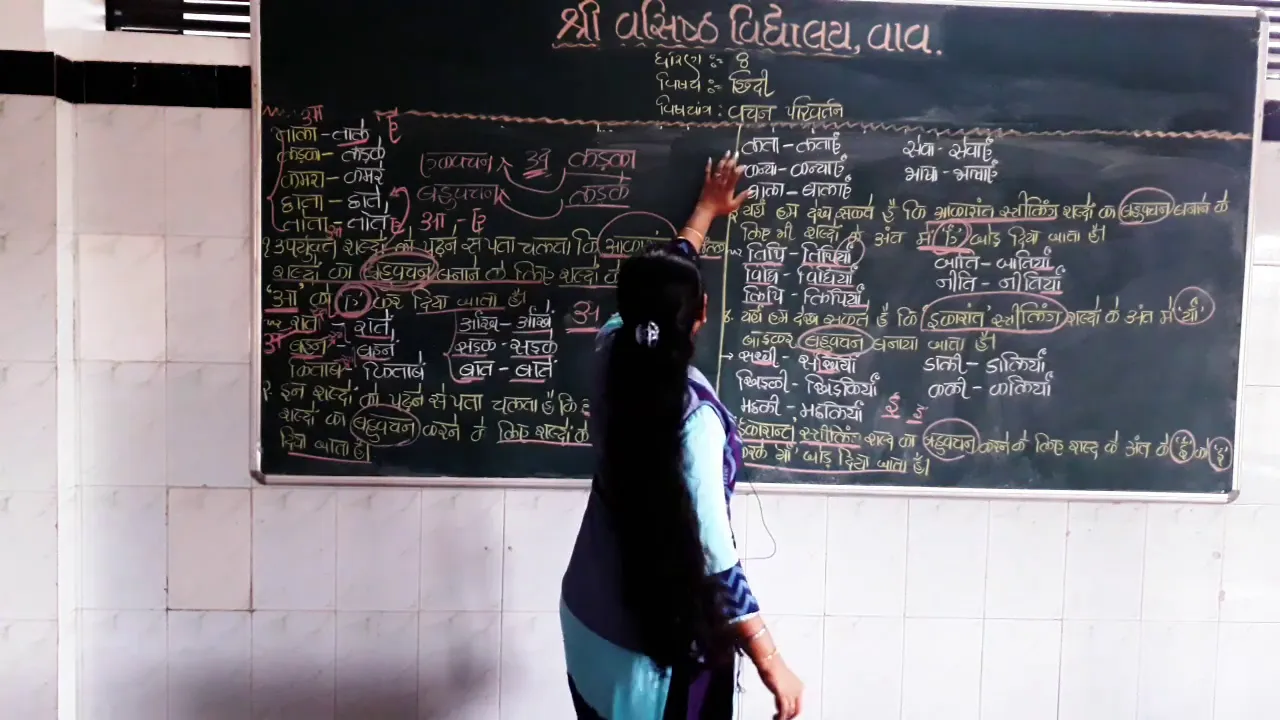 श्री वसिष्ठ विद्यालय, वाव.
धोरण :- 8
विषय :- हिंदी
विषयांग : वचन परिवर्तन
आ
ए
ताला - ताले
लड़का - लड़के
कमरा - कमरे
छाता - छाते
लोटा - लोटे
एकवचन
बहुवचन
लड़का
लड़के
आ - ए
१ उपर्युक्त शब्दों को पढ़ने से पता चलता कि आकारांत
शब्दों का बहुवचन बनाने के लिए शब्दों के
'आ' का 'ए' कर दिया जाता है।
रात - रातें
बहन - बहनें
किताब - किताबें
आँख - आँखें
सड़क - सड़कें
बात - बातें
अ
इन शब्दों को पढ़ने से पता चलता है कि
शब्दों का बहुवचन करने के लिए शब्दों के
दिया जाता है।
लता - लताएँ
कन्या - कन्याएँ
बाला - बालाएँ
सेवा - सेवाएँ
भाषा - भाषाएँ
यहाँ हम देख सकते हैं कि आकारांत स्त्रीलिंग शब्दों का बहुवचन बनाने के
लिए भी शब्दों के अंत में 'एँ' जोड़ दिया जाता है।
तिथि - तिथियाँ
विधि - विधियाँ
लिपि - लिपियाँ
जाति - जातियाँ
नीति - नीतियाँ
४. यहाँ हम देख सकते हैं कि इकारांत स्त्रीलिंग शब्दों के अंत में 'याँ'
जोड़कर बहुवचन बनाया जाता है।
सखी - सखियाँ
खिड़की - खिड़कियाँ
मछली - मछलियाँ
डाली - डालियाँ
कली - कलियाँ
ई इ
ईकारान्त स्त्रीलिंग शब्द का बहुवचन करने के लिए शब्द के अंत के 'ई' को 'इ'
करके याँ' जोड़ दिया जाता है।